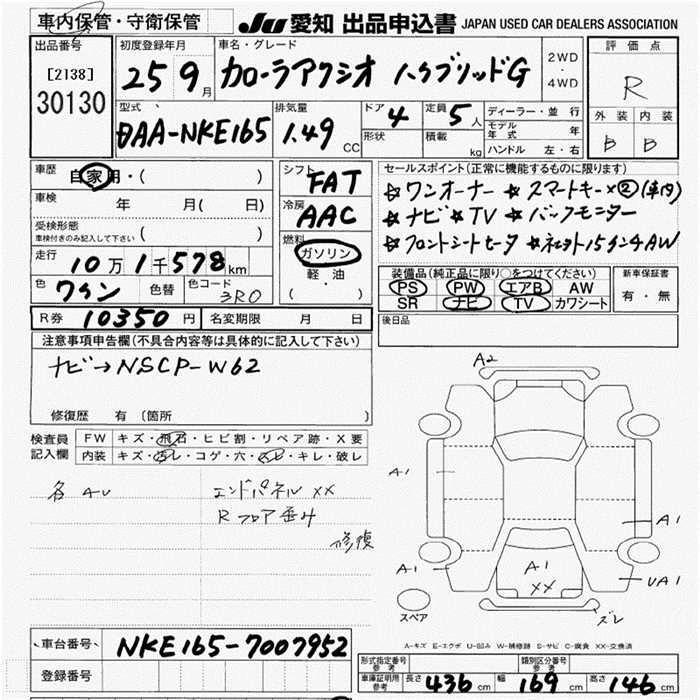 車内保管・守衛保管 JU 愛知 出品申込書 JAPAN USED CAR DEALERS ASSOCIATION
出品番号 [2138] 30130
初度登録年月 25 9月
車名・グレード カローラアクシオ ハイブリッドG
2WD
4WD
評価点 R
外装 内装
B B
型式 DAA-NKE165
排気量 1.49 CC
ドア 4
形状
定員 5人
積載 kg
ディーラー・並行
モデル年式 年
ハンドル 左・右
車歴 自家用・( )
車検 年 月( 日)
受検形態 車検付きのみ記入して下さい ( )
走行 10万1千578km
色 ワイン 色替 色コード 3R0
シフト FAT
冷房 AAC
燃料 ガソリン
軽・油
( ・ )
セールスポイント(正常に機能するものに限ります)
☆ワンオーナー ☆スマートキー×② (車内)
☆ナビ☆TV ☆バックモニター
☆フロントシートヒータ ☆ネオコト15インチAW
装備品(純正品に限り○をつけてください)
PS PW エアB AW
SR ナビ TV カワシート
新車保証書
有・無
後日品
R券 10350円 名変期限 月 日
注意事項申告欄(不具合内容等は具体的に記入して下さい)
ナビ→NSCP-W62
修復歴 有 〔箇所 〕
検査員記入欄
FW キズ・飛石・ヒビ割・リペア跡・X要
内装 キズ・汚レ・コゲ・穴・スレ・キレ・破レ
各AU エンドパネルXX
Rフロア歪み
修復
A2
A1
A1
A1
A1
XX
UA1
スペア
ズレ
A-キズ E-エクボ U-凹み W-補修跡 S-サビ C-腐食 XX-交換済
車台番号 NKE165-7007952
登録番号
形式指定番号 参考
類別区分番号 参考
車庫証明用 参考 長さ 436cm 幅 169cm 高さ 146cm